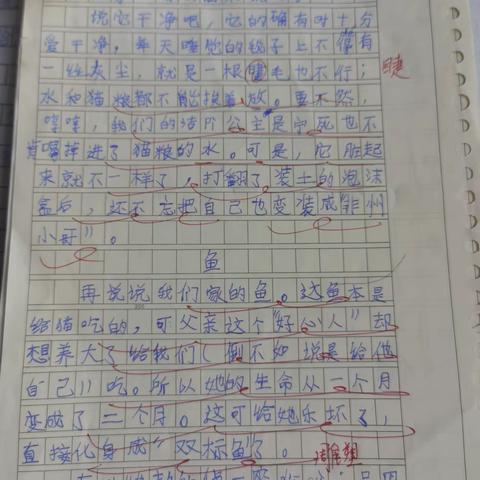 说它干净吧，它的确有时十分
爱干净，每天睡觉的毯子上不能有
一丝灰尘，就是一根睫毛也不行；
睫
水和猫粮都不能挨着放。要不然，
嘿嘿，我们的洁阶公主是宁死也不
肯喝掉进了猫粮的水。可是，它脏起
来就不一样了，打翻了装土的泡沫
盒后，还不忘把自己也变装成"非州
小哥"。
鱼
再说说我们家的鱼。这鱼本是
给猫吃的，可父亲这个"好心人"却
想养大了给我们（倒不如说是给他
自己）吃。所以她的生命从一个月
变成了三个月。这可给她乐坏了，
直接化身成"双标鱼"了。